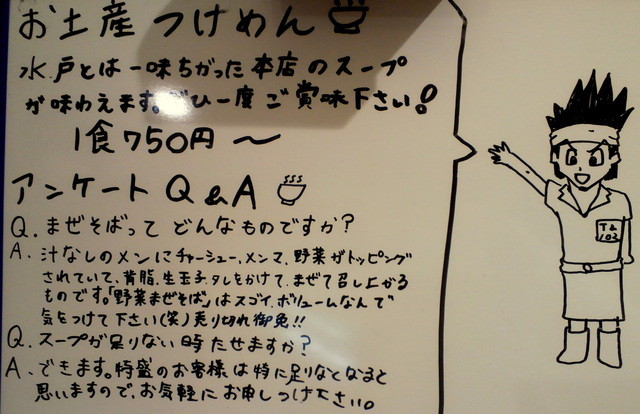 お土産つけめん
水戸とは一味ちがった本店のスープ
が味わえます。ぜひ一度ご賞味下さい!
1食750円〜
アンケートQ&A
Q. まぜそばってどんなものですか?
A. 汁なしのメンにチャーシュー、メンマ、野菜がトッピング
されていて、背脂、生玉子、タレをかけて、まぜて召し上がる
ものです。「野菜まぜそば」はスゴイ、ボリュームなんで
気をつけて下さい(笑)売り切れ御免!!
Q. スープが足りない時たせますか?
A. できます。特盛のお客様は特に足りなくなると
思いますので、お気軽にお申しつけ下さい。